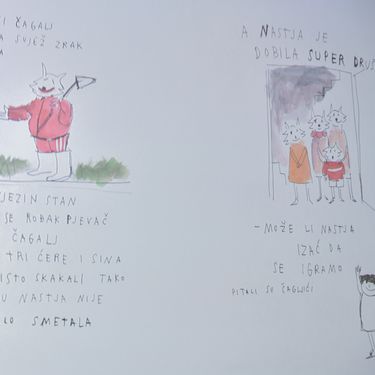 I ČAGALJ
A SVJEŽ ZRAK
A
JEZIN STAN
SE ROBAK PJEVAČ
ČAGALJ
TRI ĆERE I SINA
ISTO SKAKALI TAKO
U NASTJA NIJE
LO SMETALA
A NASTJA JE
DOBILA SUPER DRUŠ
- MOŽE LI NASTJA
IZAĆ DA
SE IGRAMO
PITALI SU ČAGLJIĆI